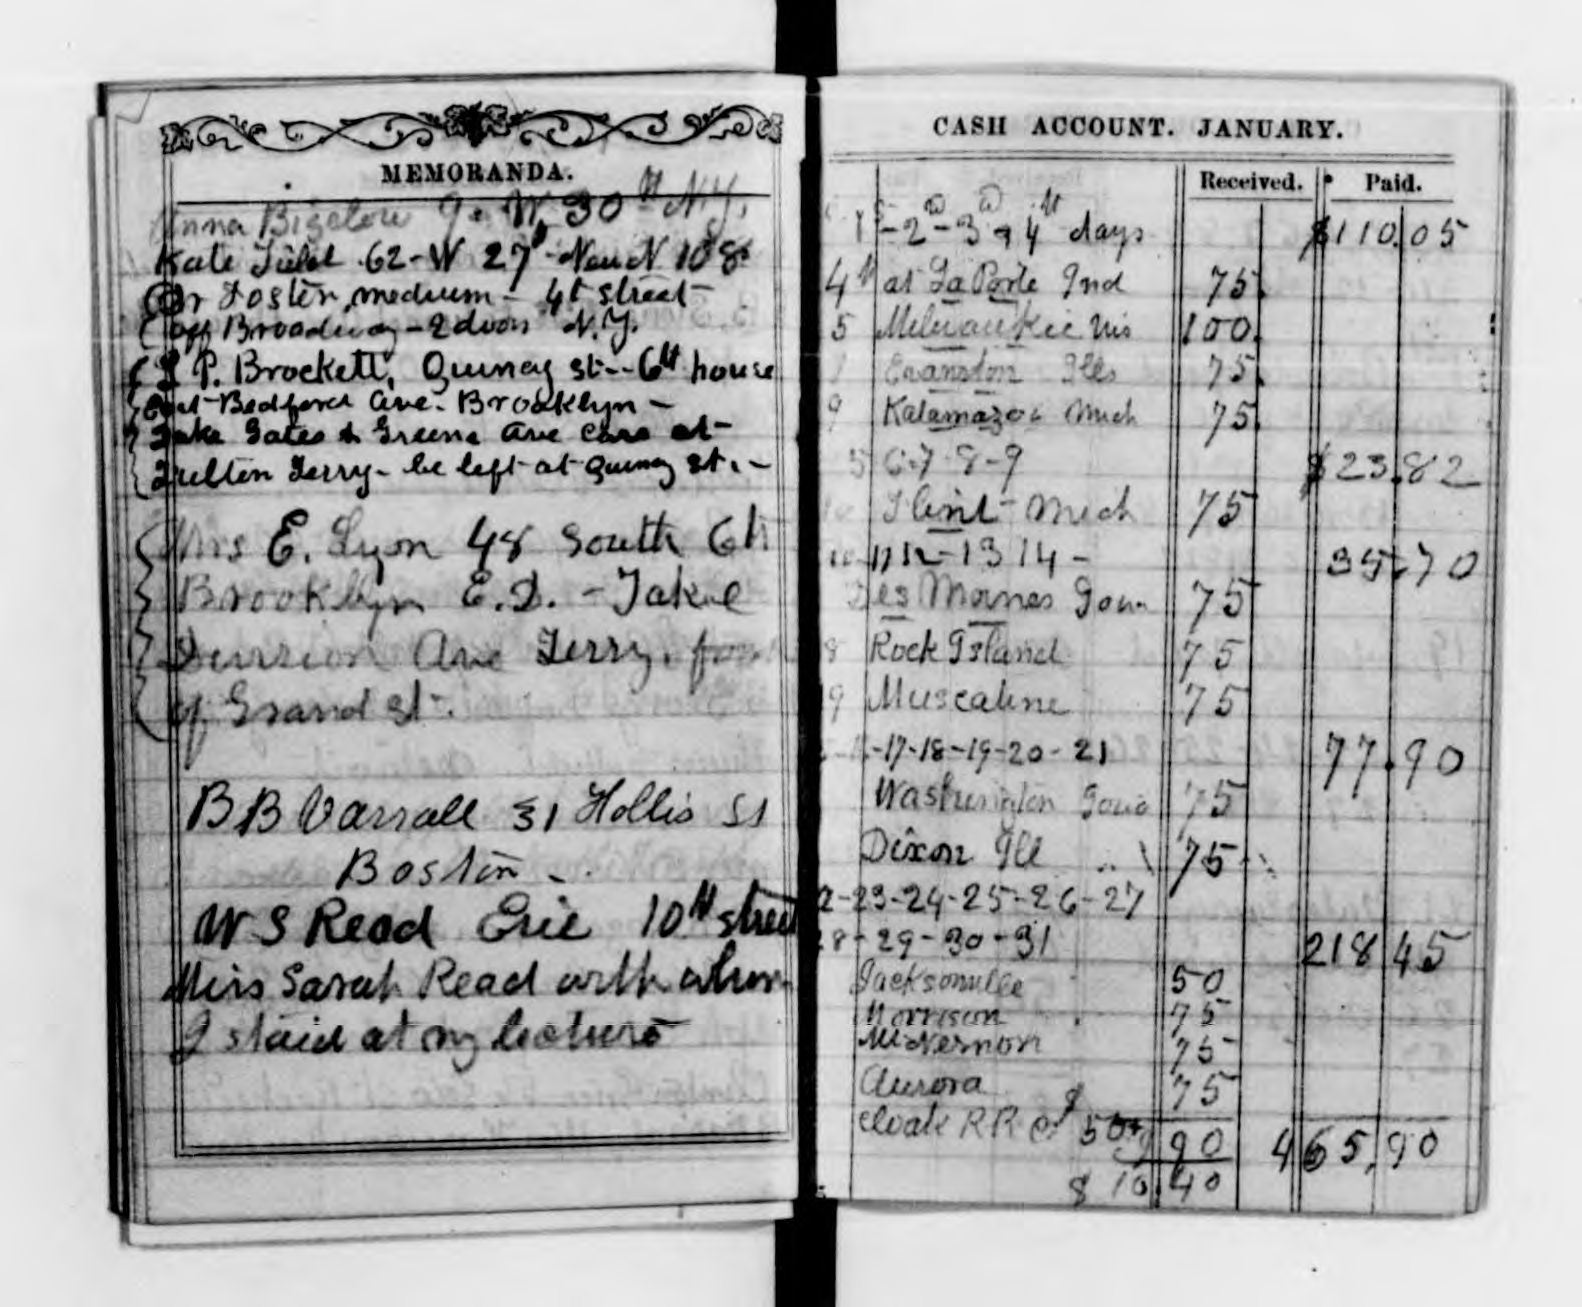 MEMORANDA.
Anna Bigelow 9. W. 30th N.Y.
Kate Field 62 - W 27th - New N 108
Dr Foster, medium - 4t street
off Broadway - 2 doors N.Y.
L P. Brockett, Quincy st -- 6th house
East Bedford Ave. Brooklyn -
Take Gates & Greene Ave cars at
Fulton Ferry - be left at Quincy st. -
Mrs E. Lyon 48 South 6th
Brooklyn E.D. - Take
Division Ave Ferry, foot
of Grand st.
B B 31 Hollis St
Boston -
W S Read Erie 10th street
Miss Sarah Read with whom
I staid at my lecture
CASH ACCOUNT. JANUARY.
Received. Paid.
1st - 2d - 3d & 4th days $110.05
4th at La Porte Ind 75.
5 Milwaukie Wis 100.
Evanston Ills 75.
9 Kalamazoo Mich 75.
5 6-7-8-9 $23.82
Flint - Mich 75
10-11 12-13 14 - 35.70
Des Moines Iowa 75
8 Rock Island 75
19 Muscatine 75
-17-18-19-20-21 77.90
Washington Iowa 75
Dixon Ill 75
2-23-24-25-26-27
28-29-30-31 218 45
Jacksonville 50
Morrison 75
Mt Vernon 75
Aurora 75
Cloak R R $ 50
90 465.90
$ 10.40